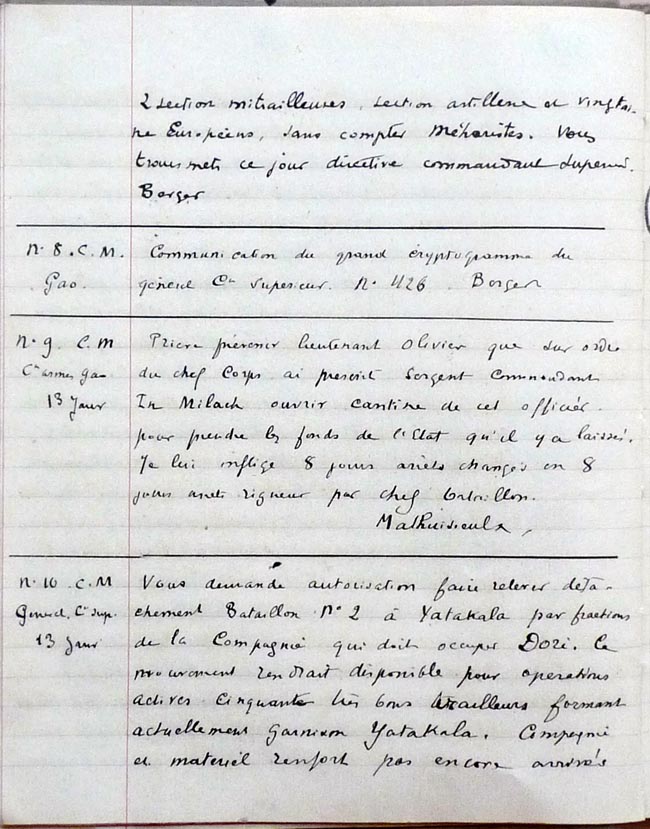 2 section mitrailleuses, section artillerie et vingtai-
ne Européens, sans compter Méharistes. Vous
transmets ce jour directive commandant supérieur.
Berger
N. 8. C. M.
Gao.
Communication du grand cryptogramme du
général Ct Superieur. N. 426. Berger
N. 9 C. M
Ct armes Gao
13 Janv
Prière prévenir lieutenant Olivier que sur ordre
du chef Corps ai prescrit Sergent Commandant
In Milach ouvrir cantine de cet officier
pour prendre les fonds de l'Etat qu'il y a laissés.
Je lui inflige 8 jours arrêts changés en 8
jours arrêts rigueur par chef bataillon.
N. 10 C. M
General Ct Sup.
13 Janv
Vous demande autorisation faire relever déta-
chement Bataillon N° 2 à Yatakala par fractions
de la Compagnie qui doit occuper Dori. Ce
mouvement rendrait disponible pour operations
actives cinquante très bons tirailleurs formant
actuellement garnison Yatakala. Compagnie
et matériel renfort pas encore arrivés